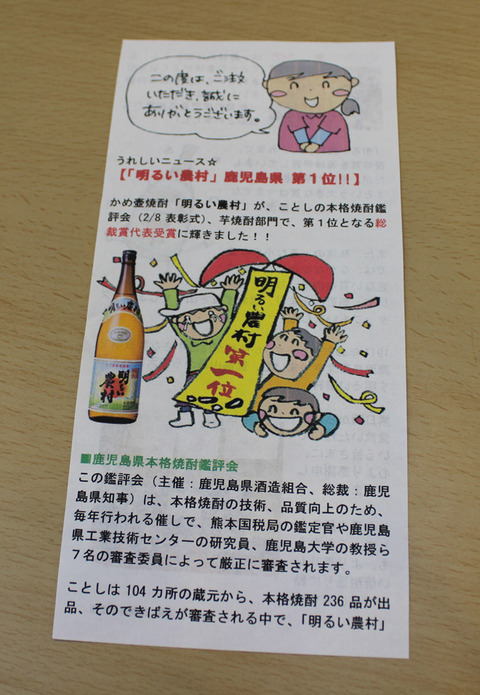 この度は、ご注文
いただき、誠に
ありがとうございます。
うれしいニュース☆
【「明るい農村」鹿児島県 第１位!!】
かめ壺焼酎「明るい農村」が、ことしの本格焼酎鑑
評会（2/8 表彰式）、芋焼酎部門で、第１位となる総
裁賞代表受賞に輝きました！！
明るい農村
第一位
明るい
農村
■鹿児島県本格焼酎鑑評会
この鑑評会（主催：鹿児島県酒造組合、総裁：鹿児
島県知事）は、本格焼酎の技術、品質向上のため、
毎年行われる催しで、熊本国税局の鑑定官や鹿児島
県工業技術センターの研究員、鹿児島大学の教授ら
７名の審査委員によって厳正に審査されます。
ことしは 104 カ所の蔵元から、本格焼酎 236 品が出
品、そのできばえが審査される中で、「明るい農村」